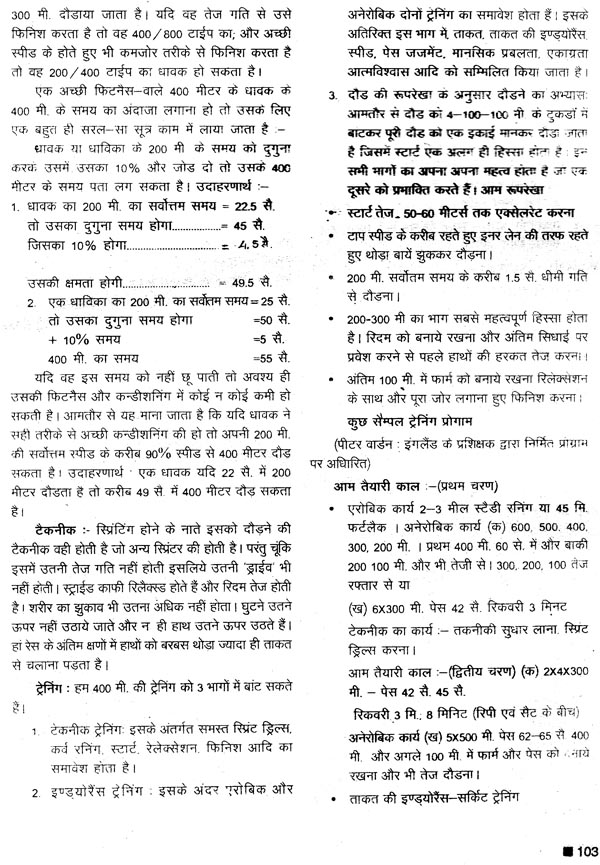 300 मी. दौडाया जाता है। यदि वह तेज गति से उसे
फिनिश करता है तो वह 400/800 टाईप का; और अच्छी
स्पीड के होते हुए भी कमजोर तरीके से फिनिश करता है
तो वह 200/400 टाईप का धावक हो सकता है।
एक अच्छी फिटनैस-वाले 400 मीटर के धावक के
400 मी. के समय का अंदाजा लगाना हो तो उसके लिए
एक बहुत ही सरल-सा सूत्र काम में लाया जाता है :-
धावक या धाविका के 200 मी. के समय को दुगुना
करके उसमें उसका 10% और जोड दो तो उसके 400
मीटर के समय पता लग सकता है। उदाहरणार्थ :-
1. धावक का 200 मी. का सर्वोत्तम समय = 22.5 सै.
तो उसका दुगुना समय होगा................= 45 सै.
जिसका 10% होगा........................... = 4.5 सै.
उसकी क्षमता होगी.......................... = 49.5 सै.
2. एक धाविका का 200 मी. का सर्वोतम समय = 25 सै.
तो उसका दुगुना समय होगा =50 सै.
+ 10% समय =5 सै.
400 मी. का समय =55 सै.
यदि वह इस समय को नहीं छू पाती तो अवश्य ही
उसकी फिटनैस और कन्डीशनिंग में कोई न कोई कमी हो
सकती है। आमतौर से यह माना जाता है कि यदि धावक ने
सही तरीके से अच्छी कन्डीशनिंग की हो तो अपनी 200 मी.
की सर्वोत्तम स्पीड के करीब 90% स्पीड से 400 मीटर दौड
सकता है। उदाहरणार्थ : एक धावक यदि 22 सै. में 200
मीटर दौडता है तो करीब 49 सै. में 400 मीटर दौड़ सकता
है।
टैकनीक :- स्प्रिंटिंग होने के नाते इसको दौड़ने की
टैकनीक वही होती है जो अन्य स्प्रिंटर की होती है। परंतु चूंकि
इसमें उतनी तेज गति नहीं होती इसलिये उतनी 'ड्राईव' भी
नहीं होती। स्ट्राईड काफी रिलैक्स्ड होते हैं और रिदम तेज होती
है। शरीर का झुकाव भी उतना अधिक नहीं होता। घुटने उतने
ऊपर नहीं उठाये जाते और न ही हाथ उतने ऊपर उठते हैं।
हां रेस के अंतिम क्षणों में हाथों को बरबस थोडा ज्यादा ही ताकत
से चलाना पड़ता है।
ट्रेनिंग : हम 400 मी. की ट्रेनिंग को 3 भागों में बांट सकते
हैं।
1. टेकनीक ट्रेनिंगः इसके अंतर्गत समस्त स्प्रिंट ड्रिल्स,
कर्व रनिंग, स्टार्ट, रेलेक्सेशन, फिनिश आदि का
समावेश होता है।
2. इण्ड्योरैंस ट्रेनिंग : इसके अंदर एरोबिक और
अनेरोबिक दोनों ट्रेनिंग का समावेश होता हैं। इसके
अतिरिक्त इस भाग में, ताकत, ताकत की इण्ड्योरैंस,
स्पीड, पेस जजमेंट, मानसिक प्रबलता, एकाग्रता
आत्मविश्वास आदि को सम्मिलित किया जाता है।
3. दौड की रूपरेखा के अनुसार दौडने का अभ्यासः
आमतौर से दौड को 4-100-100 मी के टुकडों में
बाटकर पूरी दौड को एक इकाई मानकर दौडा जाता
है जिसमें स्टार्ट एक अलग ही हिस्सा होता है : इन
सभी भागों का अपना अपना महत्व होता है जो एक
दूसरे को प्रभावित करते हैं। आम रूपरेखा
• स्टार्ट तेज . 50-60 मीटर्स तक एक्सेलरेट करना
• टाप स्पीड के करीब रहते हुए इनर लेन की तरफ रहते
हुए थोडा बायें झुककर दौड़ना।
• 200 मी. सर्वोतम समय के करीब 1.5 सै. धीमी गति
से दौडना।
• 200-300 मी का भाग सबसे महत्वपूर्ण हिस्सा होता
है। रिदम को बनाये रखना और अंतिम सिधाई पर
प्रवेश करने से पहले हाथों की हरकत तेज करना।
• अंतिम 100 मी. में फार्म को बनाये रखना रिलेक्सेशन
के साथ और पूरा जोर लगाना हुए फिनिश करना।
कुछ सैम्पल ट्रेनिंग प्रोगाम
(पीटर वार्डन : इंगलैंड के प्रशिक्षक द्वारा निर्मित प्रोग्राम
पर अधिारित)
आम तैयारी काल :-(प्रथम चरण)
• एरोबिक कार्य 2-3 मील स्टैडी रनिंग या 45 मि.
फर्टलैक । अनेरोबिक कार्य (क) 600, 500, 400,
300, 200 मी. । प्रथम 400 मी. 60 से. में और बाकी
200 100 मी. और भी तेजी से। 300, 200, 100 तेज
रफ्तार से या
(ख) 6X300 मी. पेस 42 सै. रिकवरी 3 मिनट
टेकनीक का कार्य :- तकनीकी सुधार लाना, स्प्रिंट
ड्रिल्स करना।
आम तैयारी काल :-(द्वितीय चरण) (क) 2X4X300
मी. - पेस 42 सै. 45 सै.
रिकवरी 3 मि., 8 मिनिट (रिपी एवं सैट के बीच)
अनेरोबिक कार्य (ख) 5X500 मी. पेस 62-65 सै 400
मी. और अगले 100 मी. में फार्म और पेस को बनाये
रखना और भी तेज दौडना।
• ताकत की इण्ड्योरैंस-सर्किट ट्रेनिंग
103